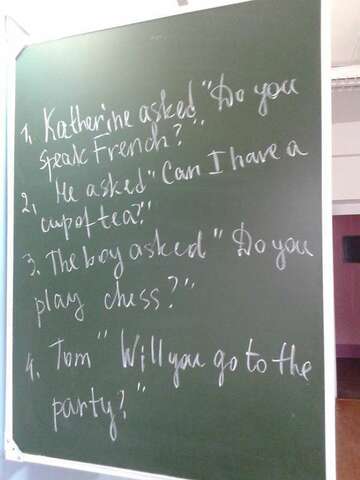 1. Katherine asked "Do you
speak French?"
2. He asked "Can I have a
cup of tea?"
3. The boy asked "Do you
play chess?"
4. Tom "Will you go to the
party?"